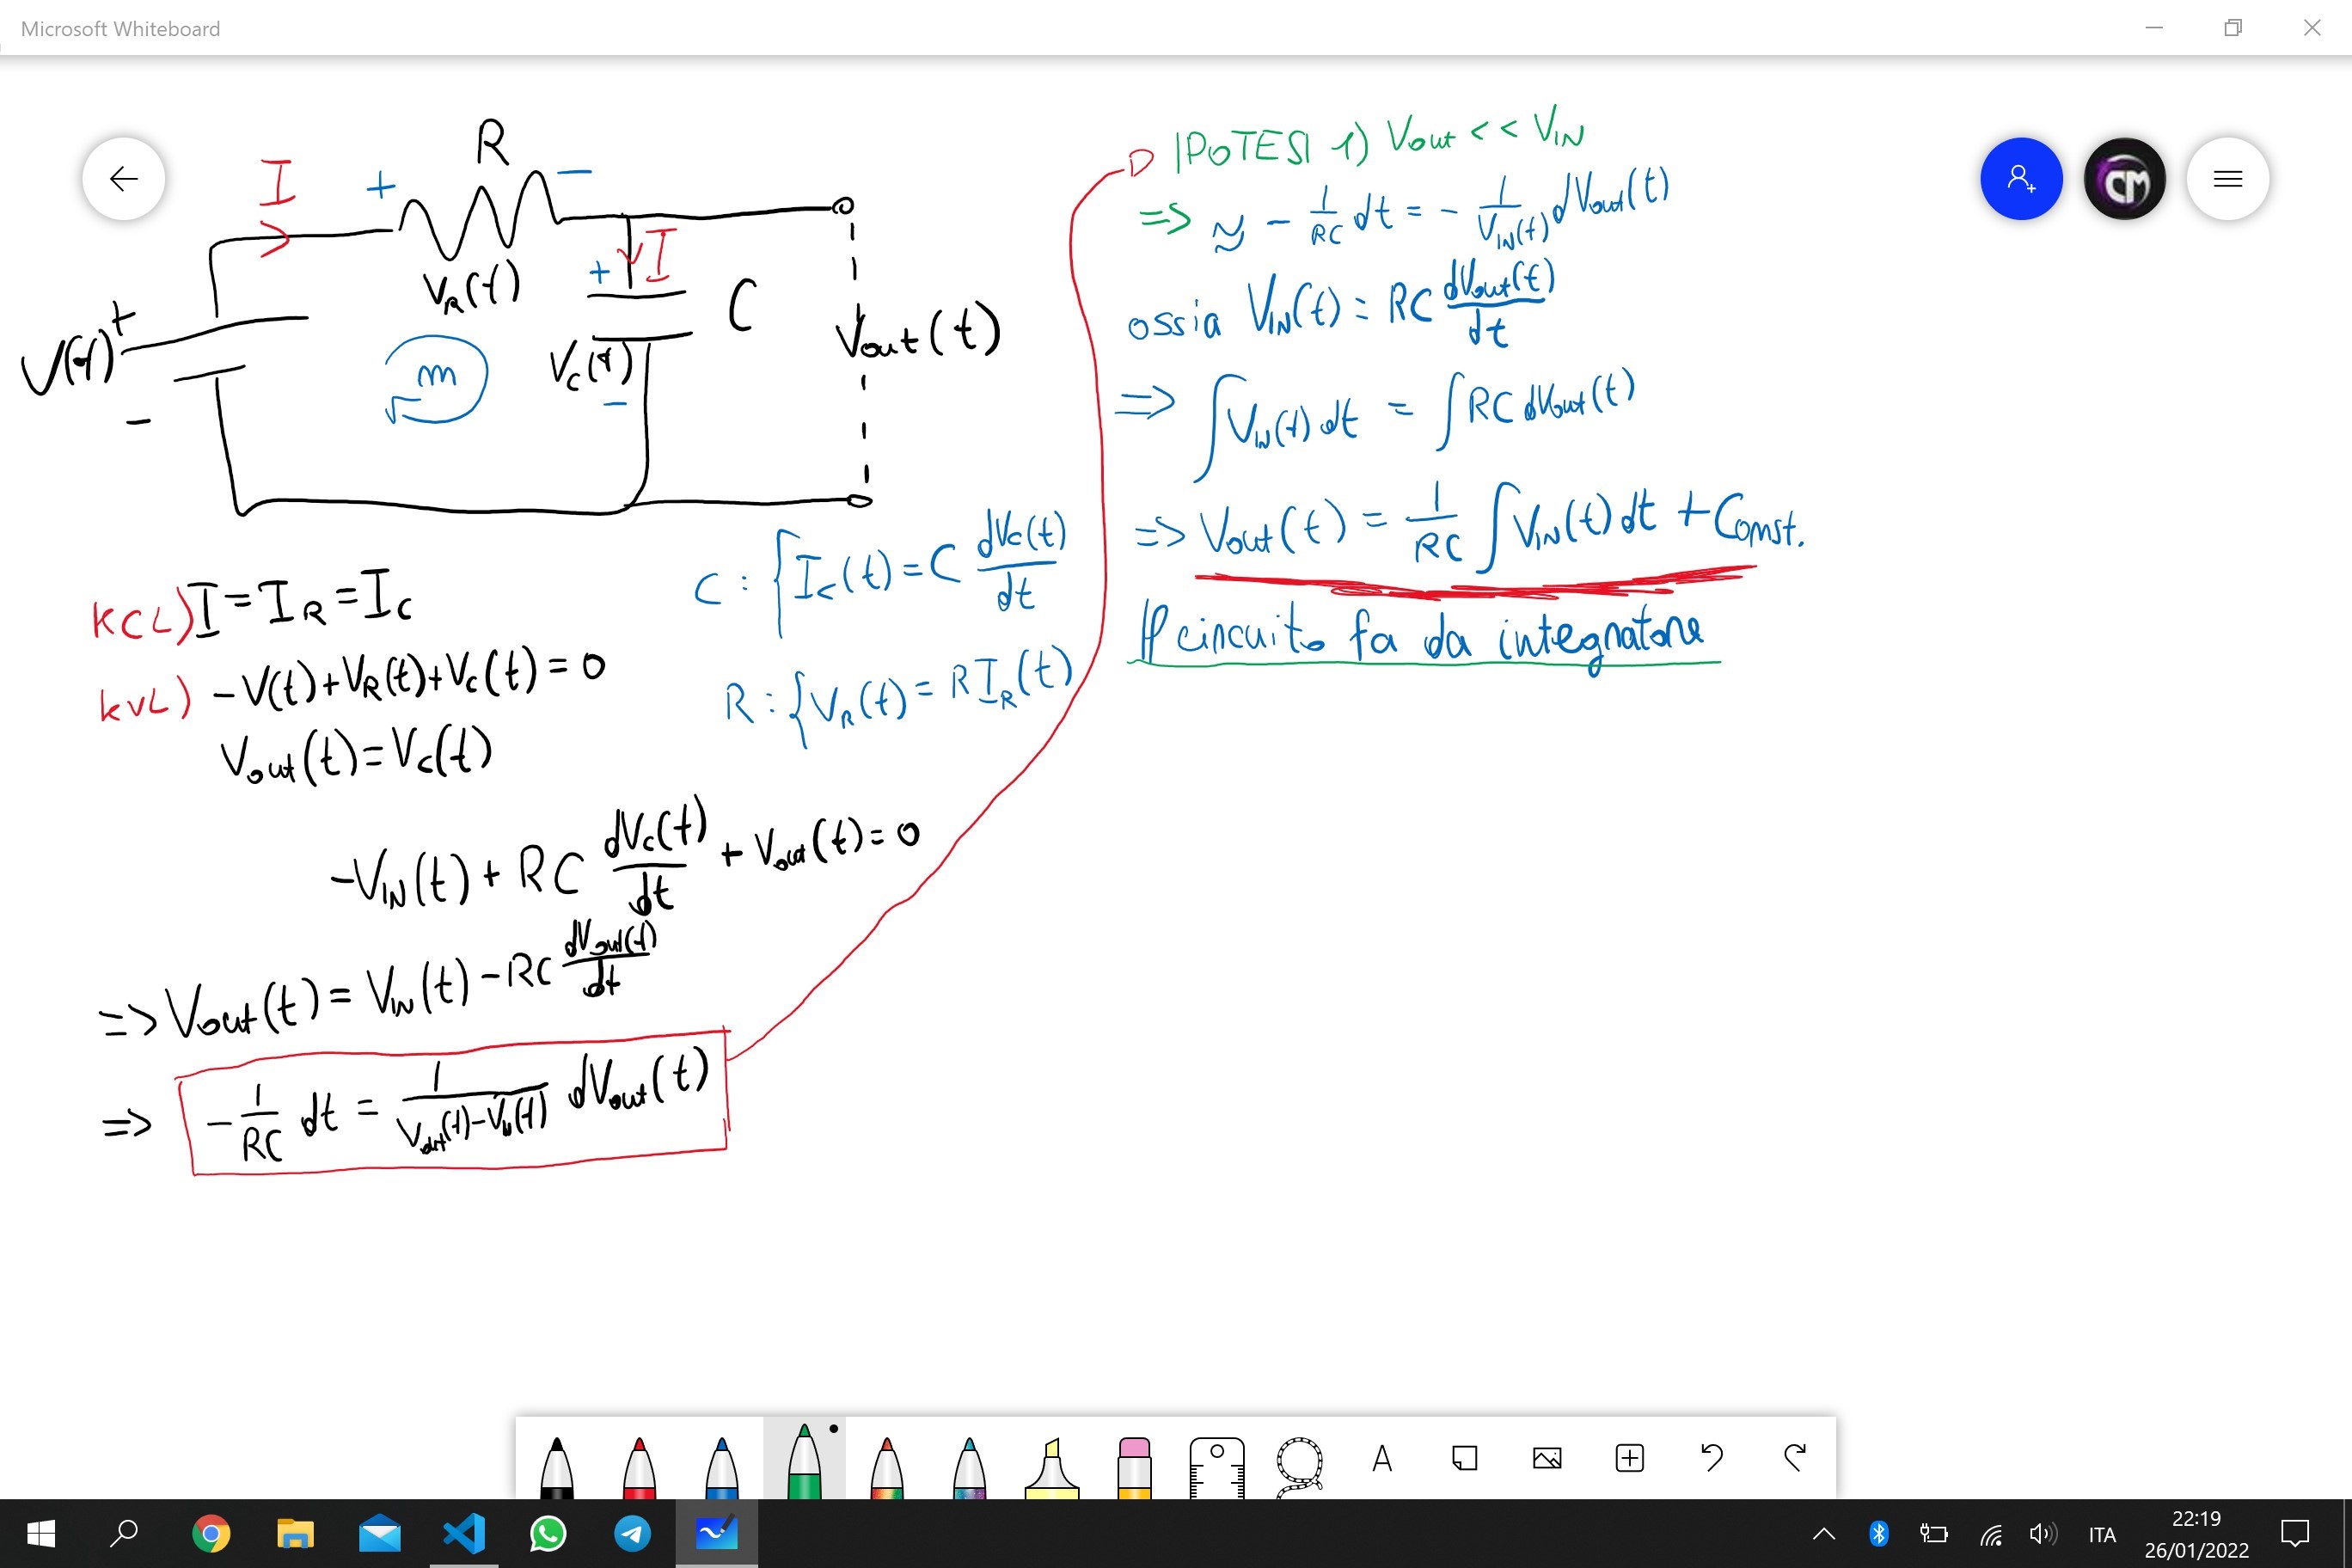 Microsoft Whiteboard
R
I
+
−
V_R(t)
I
+
C
V(t)
+
−
m
V_C(t)
−
Vout(t)
KCL) I = I_R = I_C
KVL) −V(t)+V_R(t)+V_C(t) = 0
Vout(t) = V_C(t)
C : { I_C(t) = C dV_C(t)/dt
R : { V_R(t) = R I_R(t)
−V_IN(t) + RC dV_C(t)/dt + Vout(t) = 0
=> Vout(t) = V_IN(t) − RC dVout(t)/dt
=> −1/RC dt = 1/(Vout(t)−V_IN(t)) dVout(t)
IPOTESI 1) Vout << V_IN
=> ≈ − 1/RC dt = − 1/V_IN(t) dVout(t)
ossia V_IN(t) = RC dVout(t)/dt
=> ∫V_IN(t) dt = ∫RC dVout(t)
=> Vout(t) = 1/RC ∫V_IN(t) dt + Const.
Il circuito fa da integratore
CM
A
ITA
22:19
26/01/2022